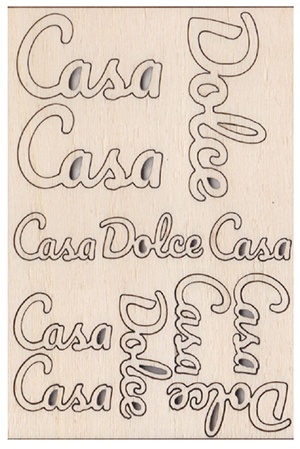 Casa
Dolce
Casa
Casa Dolce Casa
Casa
Dolce
Casa
Casa
Casa
Dolce